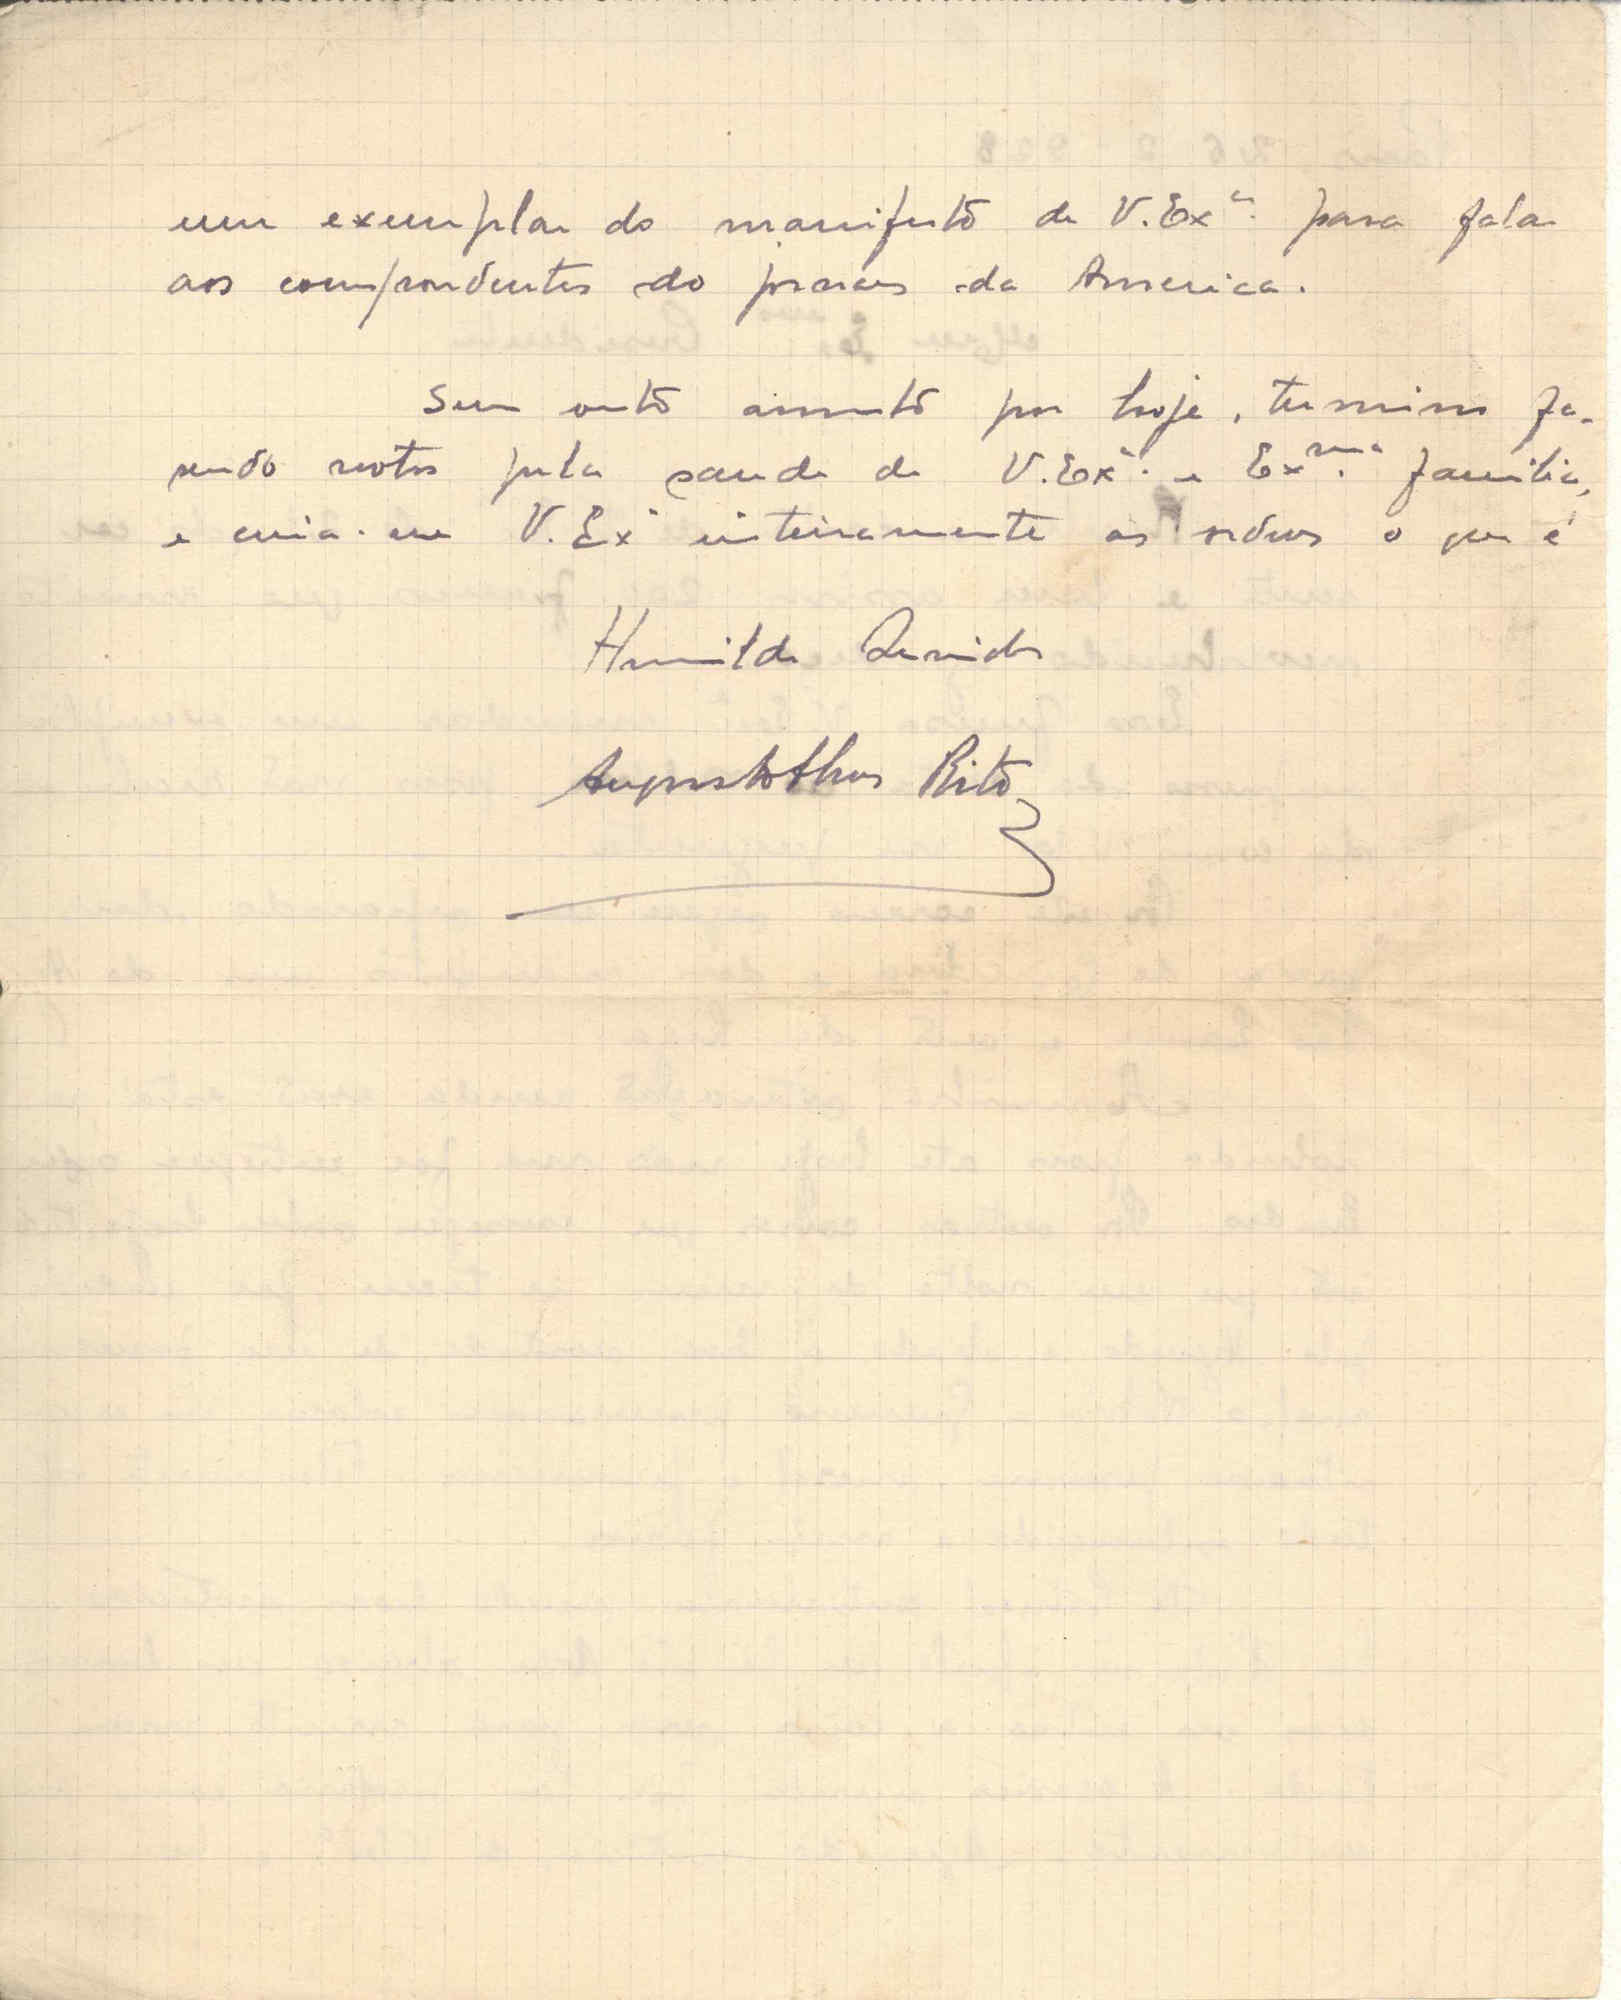 um exemplar do manifesto de V. Exª. para falar
aos correspondentes do jornaes da America.
Sem outro assunto por hoje, termino fa-
sendo votos pela saude de V. Exª. e Exma. familia,
e creia-me V. Exª inteiramente as ordens o que é
Humilde Servidor
Augusto Rito